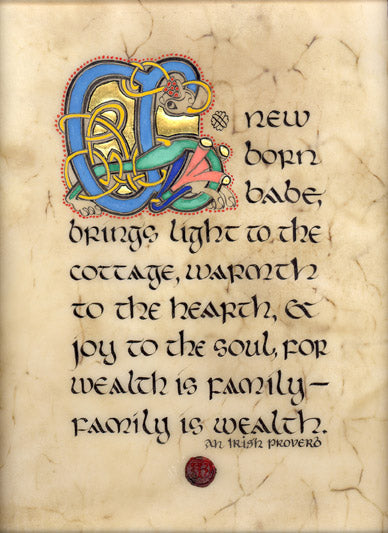 A new
born
babe,
brings light to the
cottage, warmth
to the hearth, &
joy to the soul, for
wealth is family—
family is wealth.
an Irish proverb